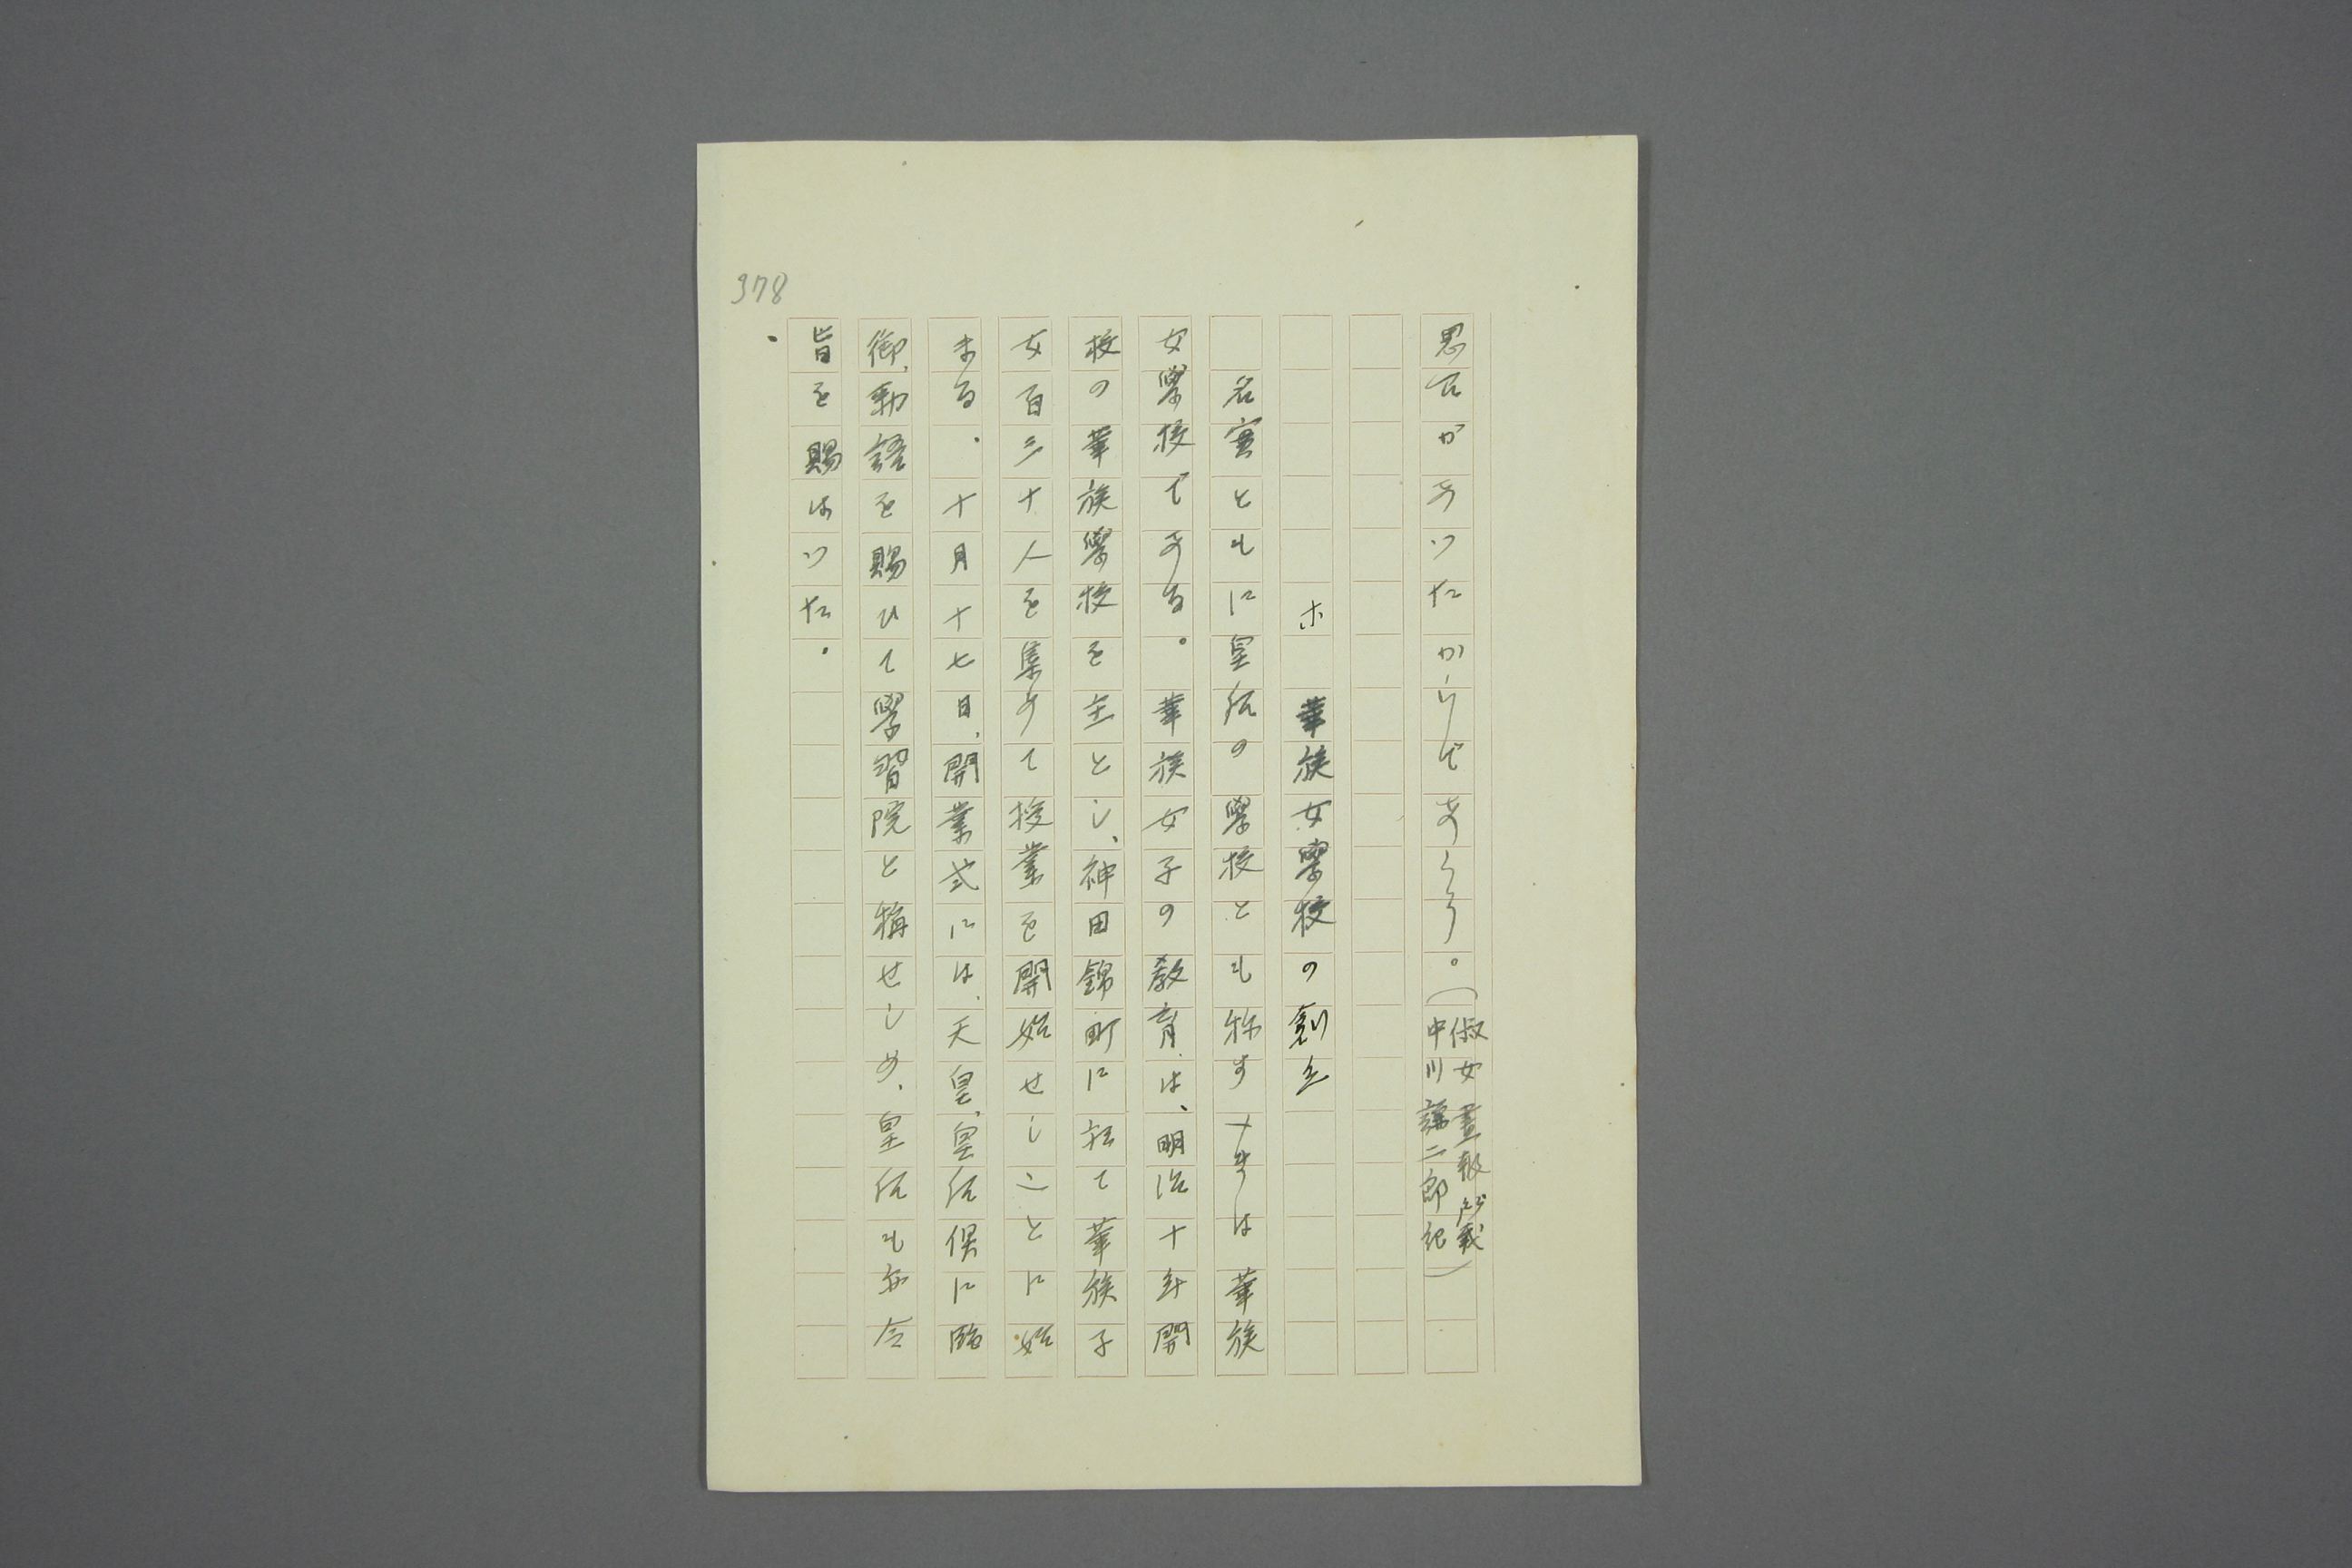 思召があつたからであらう。(淑女畫報所載 中川謙二郎記)
ホ 華族女學校の創立
名實ともに皇后の學校とも称すべきは華族
女學校である。華族女子の教育は、明治十年開
校の華族學校を主とし、神田錦町に於て華族子
女百三十人を集めて授業を開始せしことに始
まる。十月十七日、開業式には、天皇、皇后俱に臨
御、勅語を賜ひて學習院と稱せしめ、皇后も亦令
旨を賜はつた。
378